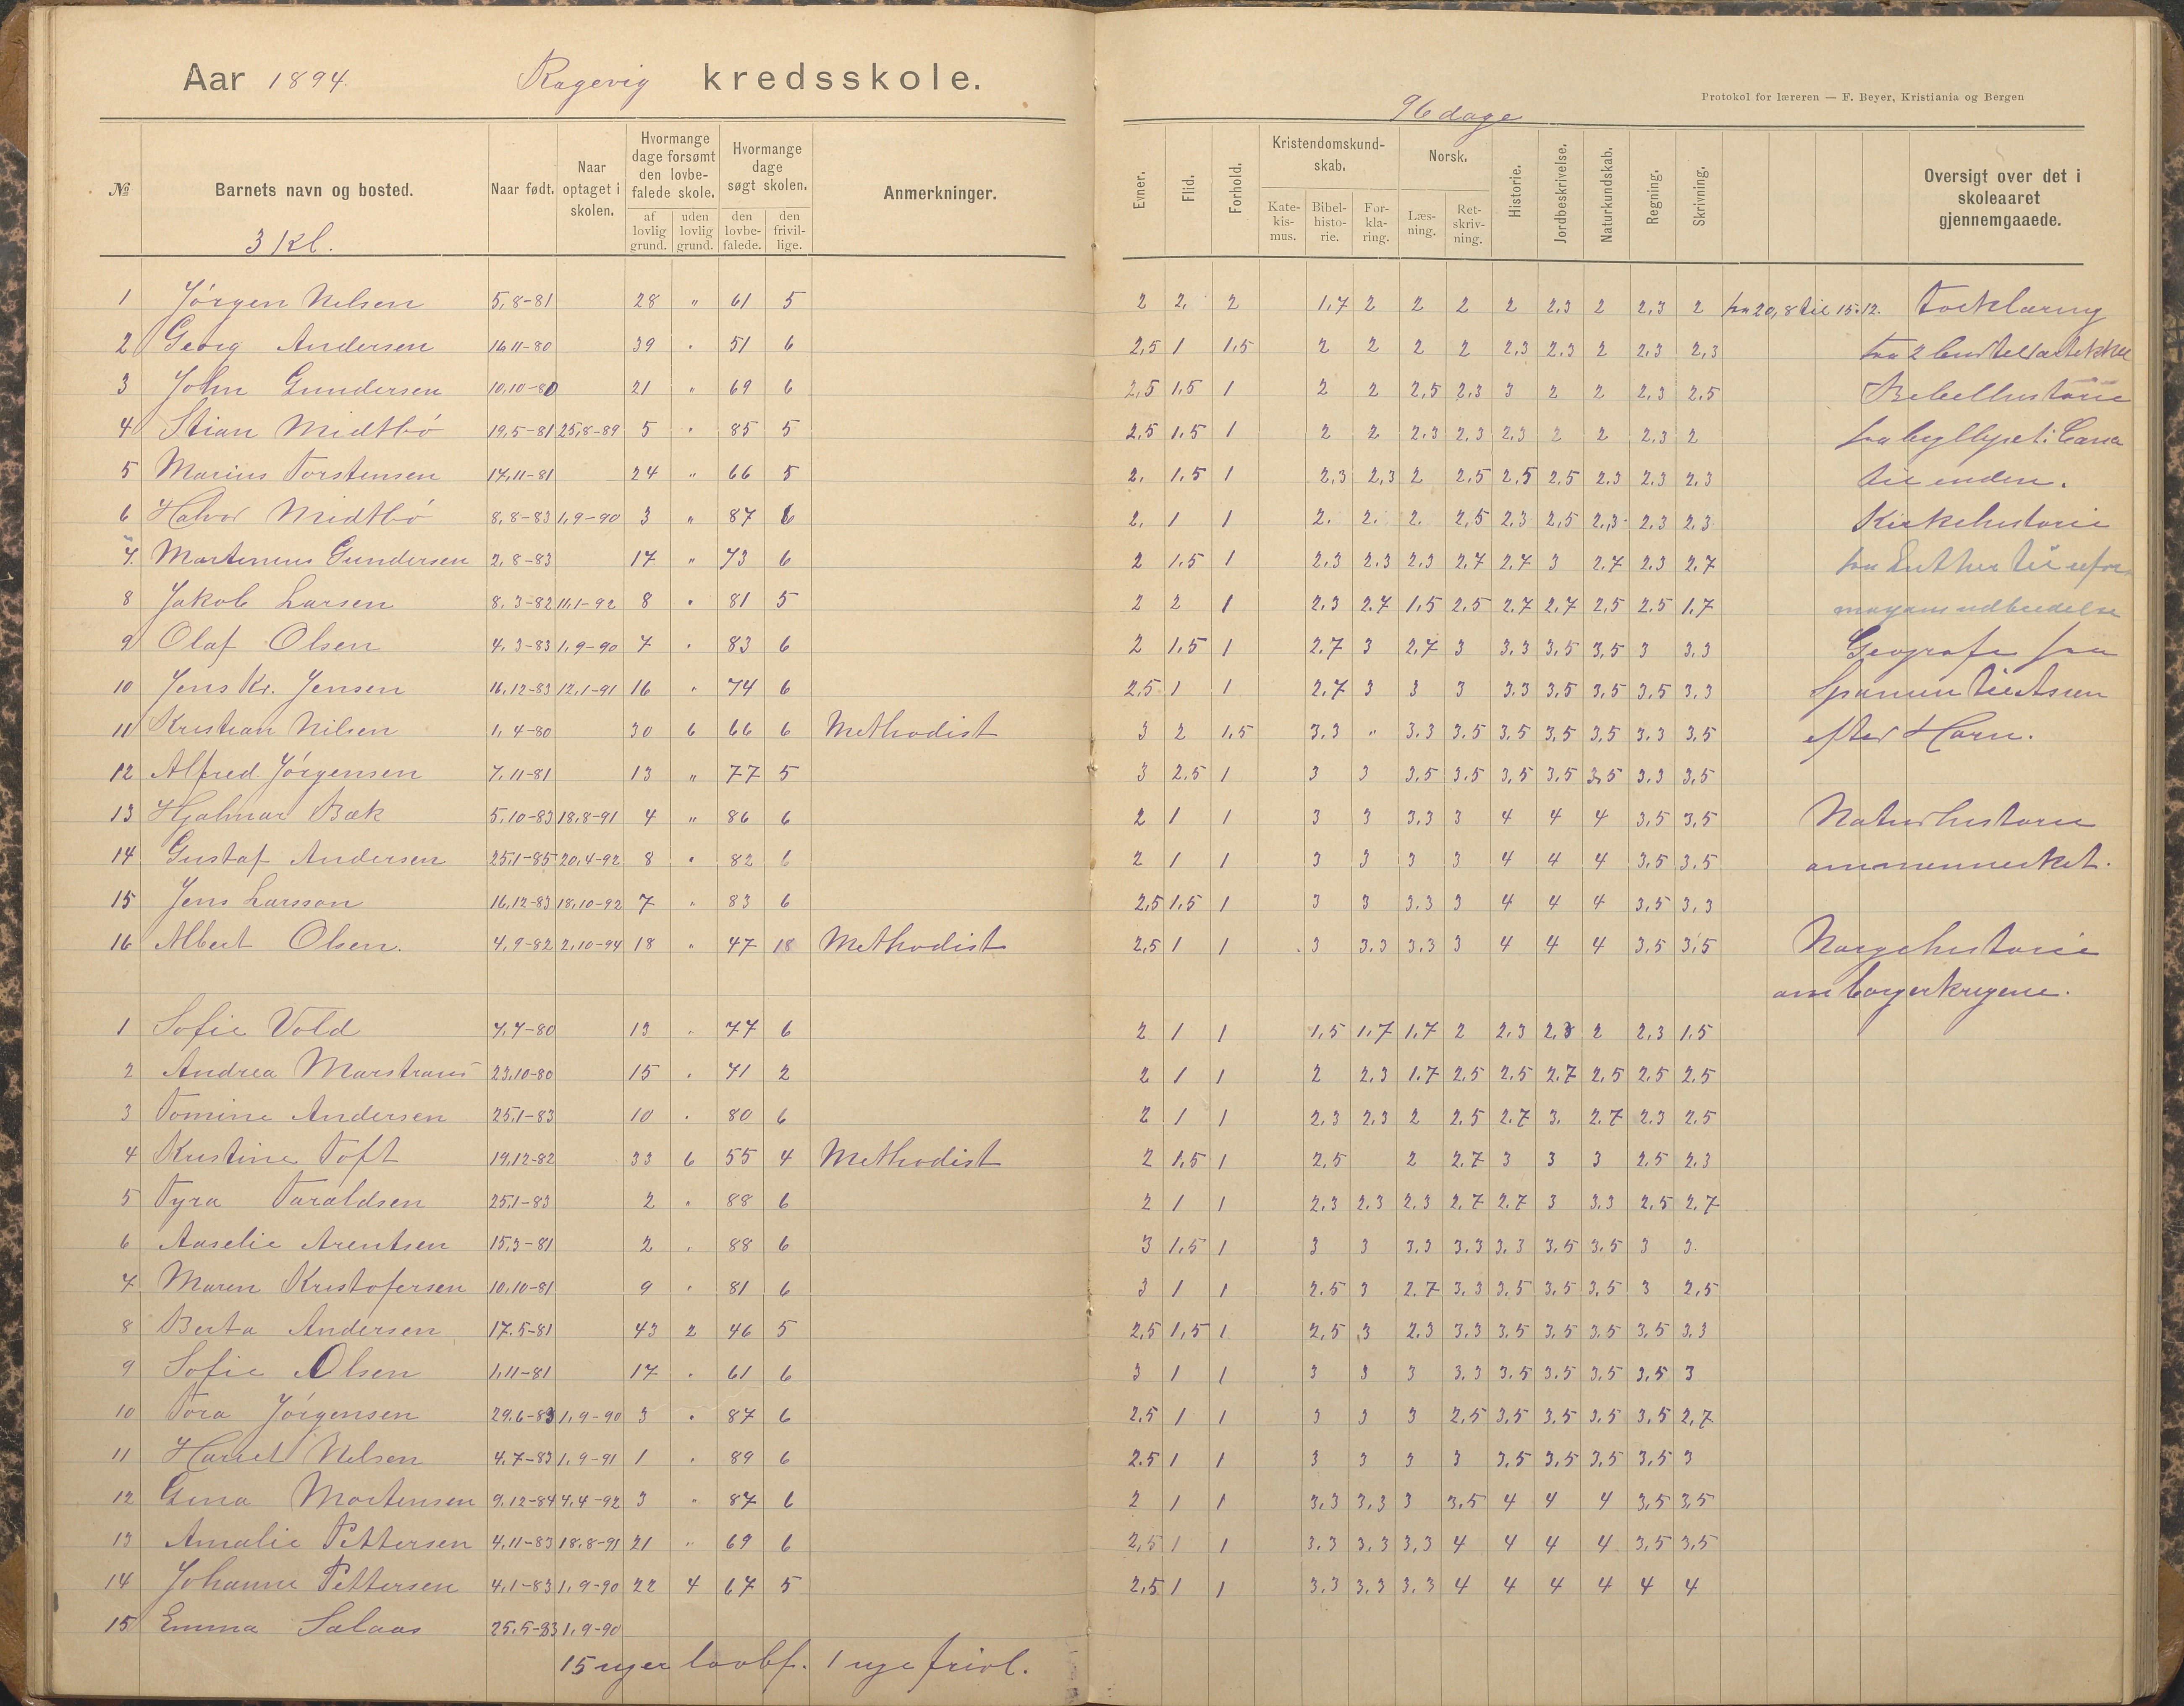 Aar 1894. Ragevig kredsskole.
96 dage
Protokol for læreren — F. Beyer, Kristiania og Bergen
№ Barnets navn og bosted. Naar født. Naar optaget i skolen. Hvormange dage forsømt den lovbefalede skole. af lovlig grund. uden lovlig grund. Hvormange dage søgt skolen. den lovbefalede. den frivillige. Anmerkninger. Evner. Flid. Forhold. Kristendomskundskab. Katekismus. Bibelhistorie. Forklaring. Norsk. Læsning. Retskrivning. Historie. Jordbeskrivelse. Naturkundskab. Regning. Skrivning. Oversigt over det i skoleaaret gjennemgaaede.
3 Kl.
1 Jörgen Nilsen 5,8-81 28 " 61 5 2 2, 2 1,7 2 2 2 2 2,3 2 2,3 2 fra 20,8 til 15.12. Forklaring
2 Georg Andersen 16.11-80 39 " 51 6 2,5 1 1,5 2 2 2 2 2,3 2,3 2 2,3 2,3 fra 2
3 John Gundersen 10,10-80 21 " 69 6 2,5 1,5 1 2 2 2,5 2,3 3 2 2 2,3 2,5 Bibelhistorie
4 Stian Midtbö 19,5-81 25,8-89 5 " 85 5 2,5 1,5 1 2 2 2,3 2,3 2,3 2 2 2,3 2 fra bryllypet i Cana
5 Marius Torstensen 17,11-81 24 " 66 5 2, 1,5 1 2,3 2,3 2 2,5 2,5 2,5 2,3 2,3 2,3 til enden.
6 Halvor Midtbö 8,8-83 1,9-90 3 " 87 6 2, 1 1 2. 2. 2. 2,5 2,3 2,5 2,3 2,3 2,3 Kirkehistorie
7. Martinius Gundersen 2,8-83 17 " 73 6 2 1,5 1 2,3 2,3 2,3 2,7 2,7 3 2,7 2,3 2,7 fra Luther til refor
8 Jakob Larsen 8,3-82 11,1-92 8 " 81 5 2 2 1 2,3 2,7 1,5 2,5 2,7 2,7 2,5 2,5 1,7 udbredelse
9 Olaf Olsen 4,3-83 1,9-90 7 " 83 6 2 1,5 1 2,7 3 2,7 3 3,3 3,5 3,5 3 3,3 Geografi fra
10 Jens Kr. Jensen 16,12-83 12,1-91 16 " 74 6 2,5 1 1 2,7 3 3 3 3,3 3,5 3,5 3,5 3,3 Spanien til Asien
11 Kristian Nilsen 1,4-80 30 6 66 6 Methodist 3 2 1,5 3,3 " 3,3 3,5 3,5 3,5 3,5 3,3 3,5 efter Horn.
12 Alfred Jörgensen 7,11-81 13 " 77 5 3 2,5 1 3 3 3,5 3,5 3,5 3,5 3,5 3,3 3,5
13 Hjalmar Bæk 5,10-83 18,8-91 4 " 86 6 2 1 1 3 3 3,3 3 4 4 4 3,5 3,5 Naturhistorie
14 Gustaf Andersen 25,1-85 20,4-92 8 " 82 6 2 1 1 3 3 3 3 4 4 4 3,5 3,5 om mennesket.
15 Jens Larsson 16,12-83 18,10-92 7 " 83 6 2,5 1,5 1 3 3 3,3 3 4 4 4 3,5 3,3
16 Albert Olsen. 4,9-82 2,10-94 18 " 47 18 Methodist 2,5 1 1 3 3,3 3,3 3 4 4 4 3,5 3,5 Norgehistorie
om borgerkrigene.
1 Sofie Vold 7,7-80 13 " 77 6 2 1 1 1,5 1,7 1,7 2 2,3 2,3 2 2,3 1,5
2 Andrea Marstrans 23,10-80 15 " 71 2 2 1 1 2 2,3 1,7 2,5 2,5 2,7 2,5 2,5 2,5
3 Tomine Andersen 25,1-83 10 " 80 6 2 1 1 2,3 2,3 2 2,5 2,7 3. 2,7 2,3 2,5
4 Kristine Toft 19,12-82 33 6 55 4 Methodist 2 1,5 1 2,5 2 2,7 3 3 3 2,5 2,3
5 Tyra Taraldsen 25,1-83 2 " 88 6 2 1 1 2,3 2,3 2,3 2,7 2,7 3 3,3 2,5 2,7
6 Aaselie Arentsen 15,3-81 2 " 88 6 3 1,5 1 3 3 3,3 3,3 3,3 3,5 3,5 3 3.
7 Maren Kristofersen 10,10-81 9 " 81 6 3 1 1 2,5 3 2,7 3,3 3,5 3,5 3,5 3 2,5
8 Berta Andersen 17,5-81 43 2 46 5 2,5 1,5 1 2,5 3 2,3 3,3 3,5 3,5 3,5 3,5 3,3
9 Sofie Olsen 1,11-81 17 " 61 6 3 1 1 3 3 3 3,3 3,5 3,5 3,5 3,5 3
10 Tora Jörgensen 29,6-83 1,9-90 3 " 87 6 2,5 1 1 3 3 3 2,5 3,5 3,5 3,5 3,5 2,7
11 Harriet Nilsen 4,7-83 1,9-91 1 " 89 6 2,5 1 1 3 3 3 3 3,5 3,5 3,5 3,5 3
12 Gina Mortensen 9,12-84 4,4-92 3 " 87 6 2 1 1 3,3 3,3 3 3,5 4 4 4 3,5 3,5
13 Amalie Pettersen 4,11-83 18,8-91 21 " 69 6 2,5 1 1 3,3 3,3 3,3 4 4 4 4 3,5 3,5
14 Johanne Pettersen 4,1-83 1,9-90 22 4 67 5 2,5 1 1 3,3 3,3 3,3 4 4 4 4 4 4
15 Emma Salaas 25,5-83 1,9-90
15 uger lovbf. 1 uge frivl.